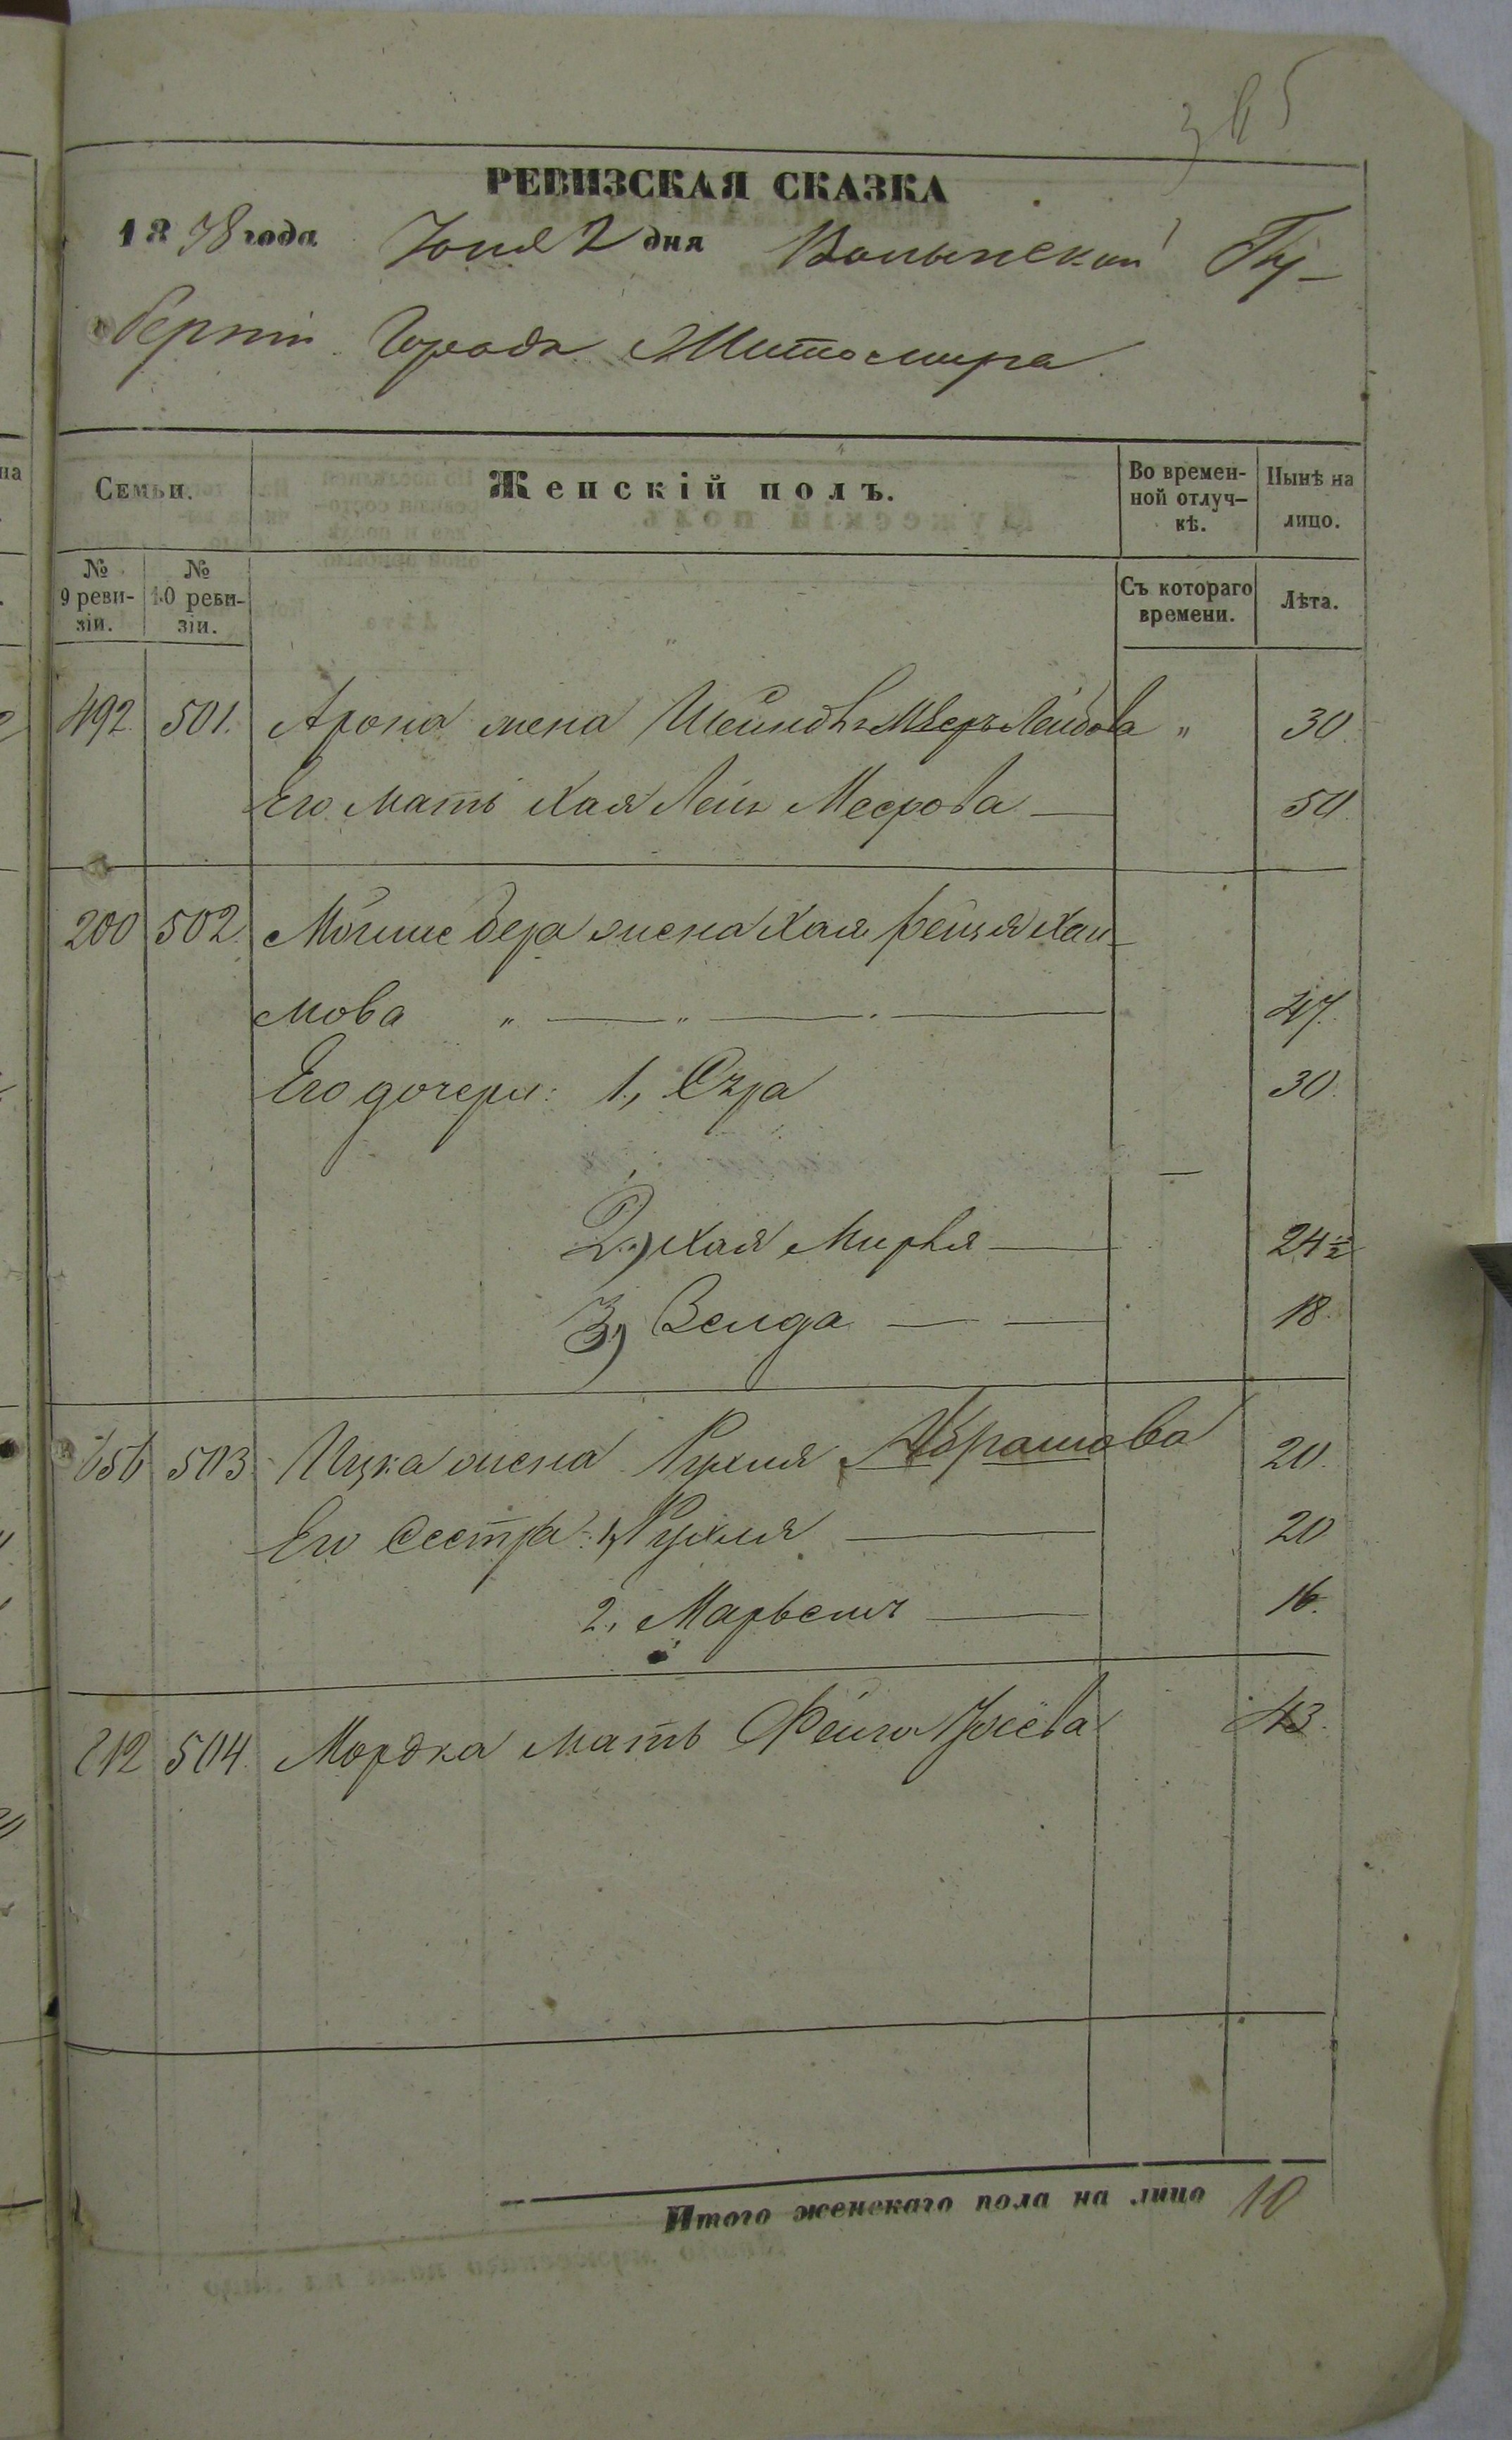 365
РЕВИЗСКАЯ СКАЗКА
1858 года Іюня 2 дня Волынской Гу-
берніи Города Житомира
Семьи. Женскій полъ. Во времен-ной отлуч-кѣ. Нынѣ на лицо.
№ 9 реви-зіи. № 10 реви-зіи. Съ котораго времени. Лѣта.
492 501. Арона жена Шейндль Мееръ Лейбова „ 30
Его мать Хая Лея Меерова — 50
200 502. Мошке бера жена Хая Рейзя Хаи-
мова „ — „ — . — 47.
Его дочери: 1, Сура 30.
2,) Хая Мирля — 24 1/2
3,) Зелда — — 18.
656 503. Ицка жена Рухля Абрамова 20.
Его Сестра: 1, Рухля — 20
2, Марьем — 16.
212 504. Мордка мать Фейга 43.
Итого женскаго пола на лицо 10